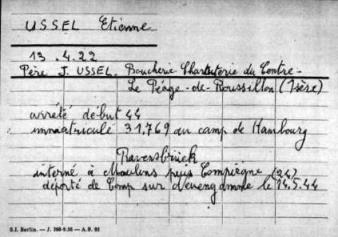 USSEL Etienne
13.4.22
Père J. USSEL. Boucherie Charcuterie du Centre-
Le Péage-de-Roussillon (Isère)
arreté début 44
immatriculé 31.769 au camp de Hambourg
Ravensbrück
interné à Moulins puis Compiègne (24)
déporté de Comp sur Neuengamme le 14.5.44
S.I. Berlin. — J.